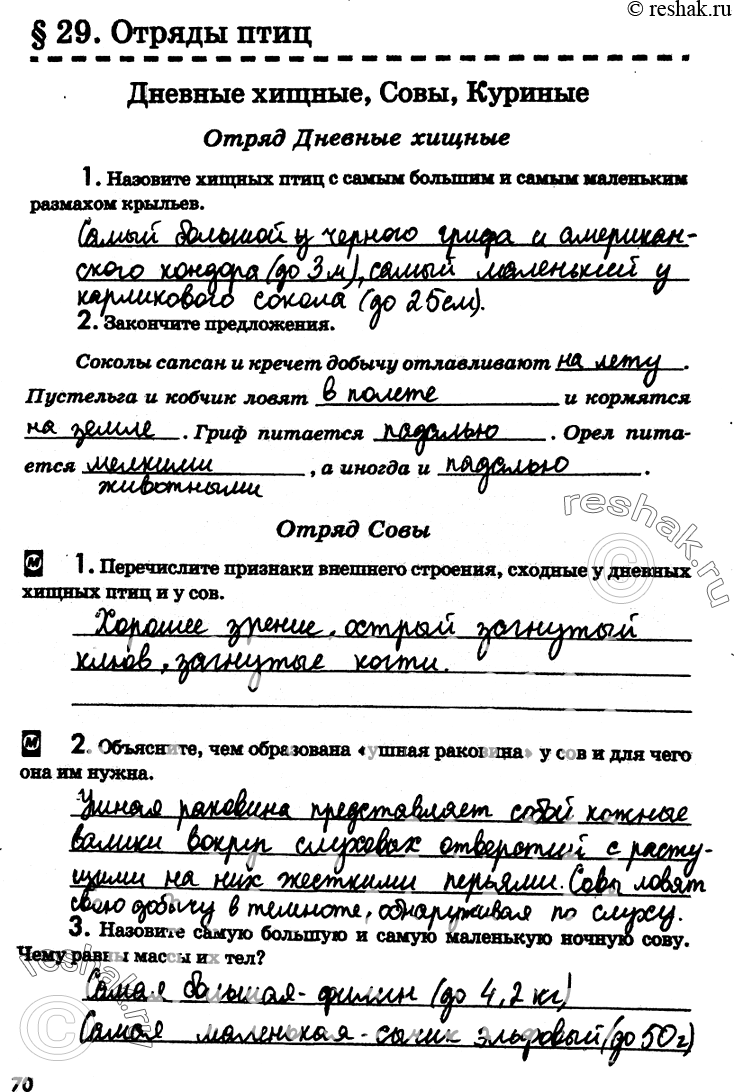 © reshak.ru
§ 29. Отряды птиц
Дневные хищные, Совы, Куриные
Отряд Дневные хищные
1. Назовите хищных птиц с самым большим и самым маленьким
размахом крыльев.
Самый большой у черного грифа и американ-
ского кондора (до 3 м), самый маленький у
карликового сокола (до 25 см).
2. Закончите предложения.
Соколы сапсан и кречет добычу отлавливают на лету.
Пустельга и кобчик ловят в полете и кормятся
на земле. Гриф питается падалью. Орел пита-
ется мелкими животными, а иногда и падалью.
Отряд Совы
М 1. Перечислите признаки внешнего строения, сходные у дневных
хищных птиц и у сов.
Хорошее зрение, острый загнутый
клюв, загнутые когти.
М 2. Объясните, чем образована «ушная раковина» у сов и для чего
она им нужна.
Ушная раковина представляет собой кожные
валики вокруг слуховых отверстий с расту-
щими на них жесткими перьями. Совы ловят
свою добычу в темноте, обнаруживая по слуху.
3. Назовите самую большую и самую маленькую ночную сову.
Чему равны массы их тел?
Самая большая - филин (до 4,2 кг)
Самая маленькая - сычик эльфовый (до 50 г)
70
reshak.ru
©
reshak.ru
©